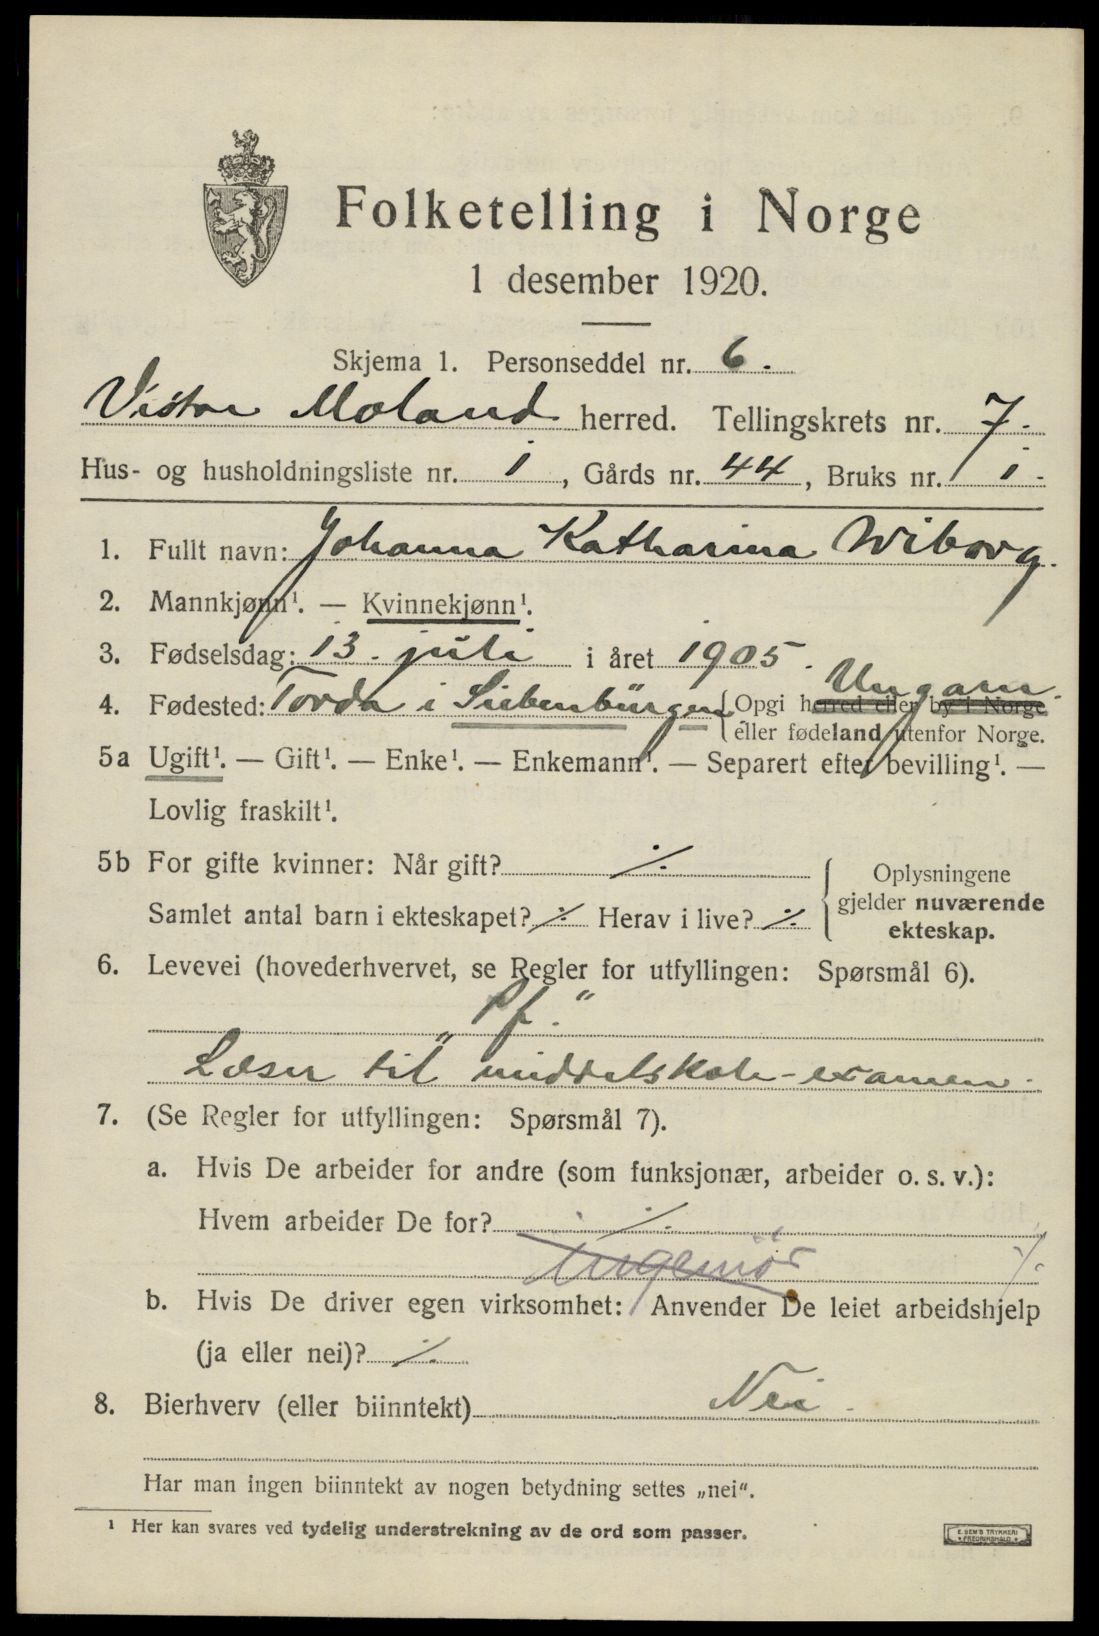 Folketelling i Norge
1 desember 1920.
Skjema 1. Personseddel nr. 6.
Vestre Moland herred. Tellingskrets nr. 7.
Hus- og husholdningsliste nr. 1, Gårds nr. 44, Bruks nr. 1.
1. Fullt navn: Johanna Katharina Wiborg.
2. Mannkjønn¹. — Kvinnekjønn¹.
3. Fødselsdag: 13. juli i året 1905.
Ungarn.
4. Fødested: Torda i Siebenbürgen {Opgi herred eller by i Norge
eller fødeland utenfor Norge.
5a Ugift¹. — Gift¹. — Enke¹. — Enkemann¹. — Separert efter bevilling¹. —
Lovlig fraskilt¹.
5b For gifte kvinner: Når gift? ./.
Samlet antal barn i ekteskapet? ./. Herav i live? ./.
{Oplysningene
gjelder nuværende
ekteskap.
6. Levevei (hovederhvervet, se Regler for utfyllingen: Spørsmål 6).
Pf."
Læser til" middelskole-examen.
7. (Se Regler for utfyllingen: Spørsmål 7).
a. Hvis De arbeider for andre (som funksjonær, arbeider o. s. v.):
Hvem arbeider De for? ./.
Ingeniør ./.
b. Hvis De driver egen virksomhet: Anvender De leiet arbeidshjelp
(ja eller nei)? ./.
8. Bierhverv (eller biinntekt) Nei.
Har man ingen biinntekt av nogen betydning settes „nei".
¹ Her kan svares ved tydelig understrekning av de ord som passer.
E. SEM'S TRYKKERI
* FREDRIKSHALD *